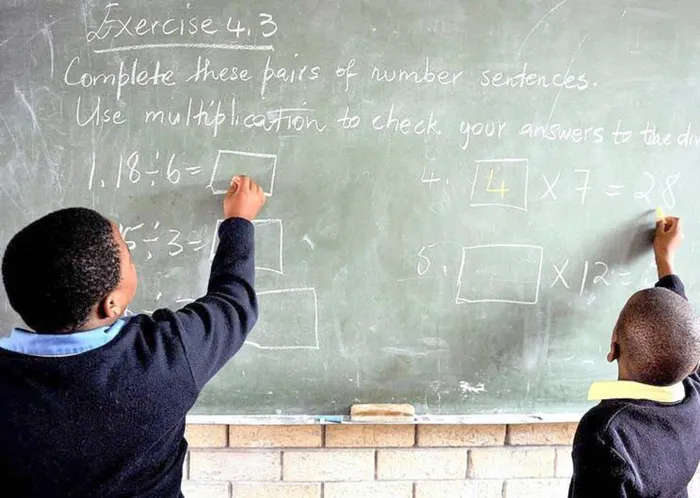 Exercise 4.3
Complete these pairs of number sentences.
Use multiplication to check your answers to the
1. 18 ÷ 6 =
5 ÷ 3 =
4. 4 × 7 = 28
5. × 12 =